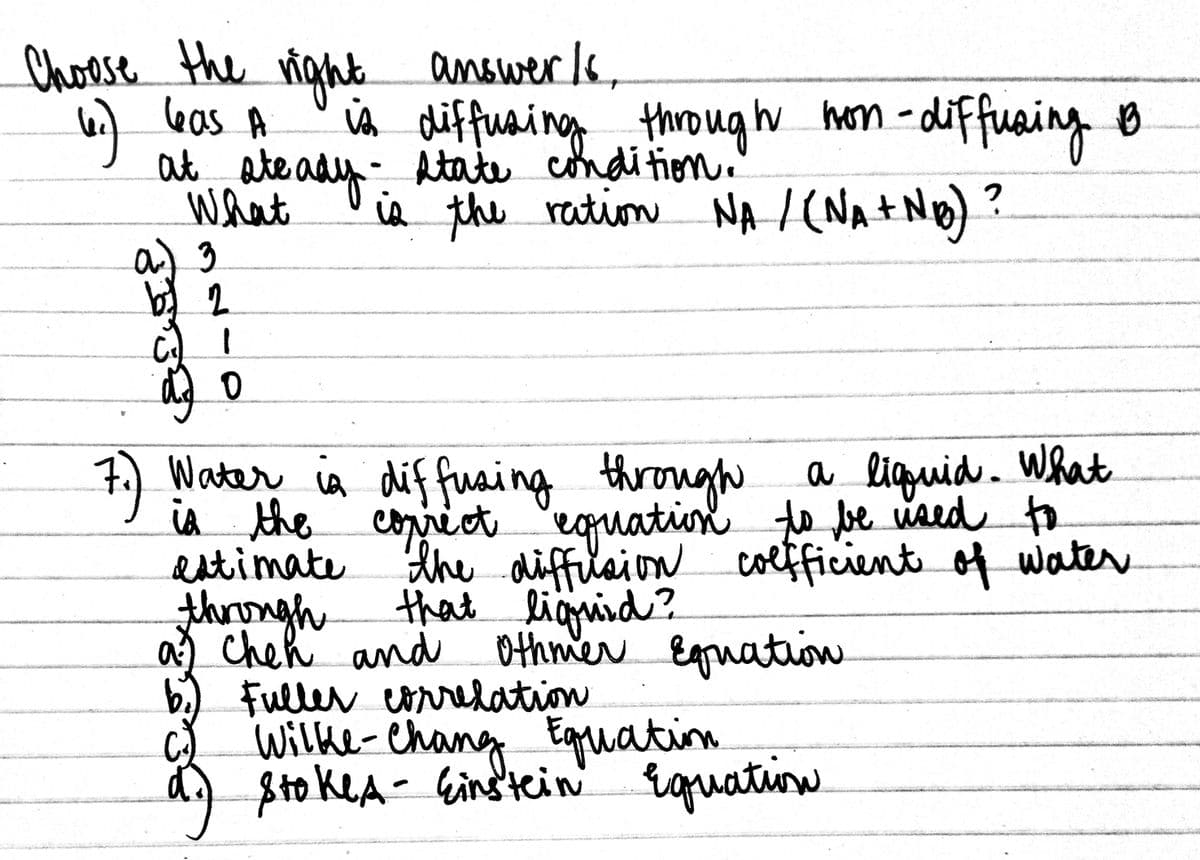 Choose the right answer/s,
6.) Gas A is diffusing through non-diffusing B
at steady-state condition.
What is the ration NA / (NA + NB) ?
a.) 3
b.) 2
c.) 1
d.) 0
7.) Water is diffusing through a liquid. What
is the correct equation to be used to
estimate the diffusion coefficient of water
through that liquid?
a.) Chen and Othmer Equation
b.) Fuller correlation
c.) Wilke-Chang Equation
d.) Stokes-Einstein Equation